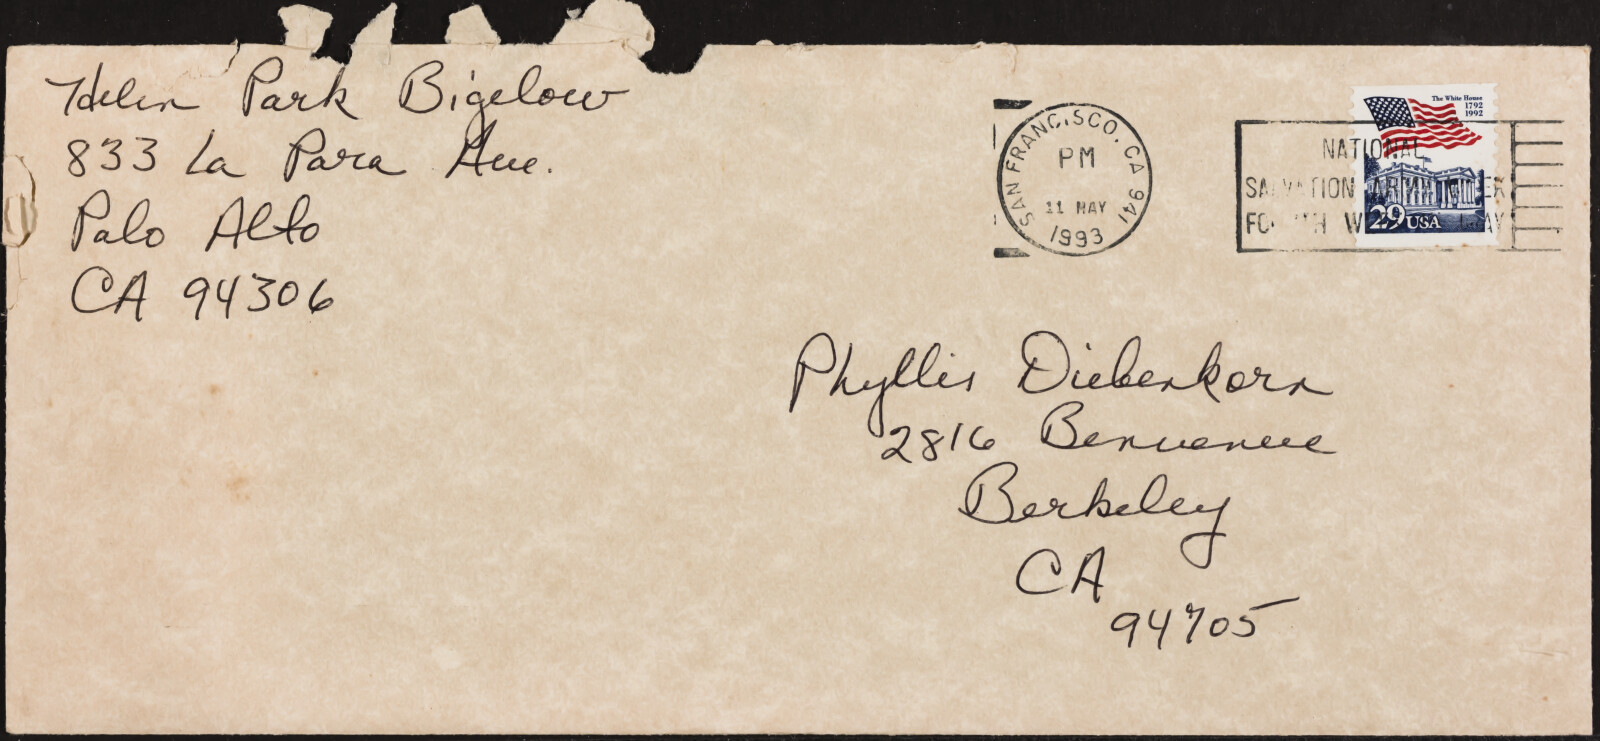 Helen Park Bigelow
833 La Para Ave.
Palo Alto
CA 94306
SAN FRANCISCO, CA 941
PM
11 MAY
1993
NATIONAL
SALVATION ARMY
The White House
1792
1992
29 USA
Phyllis Diebenkorn
2816 Benvenue
Berkeley
CA
94705